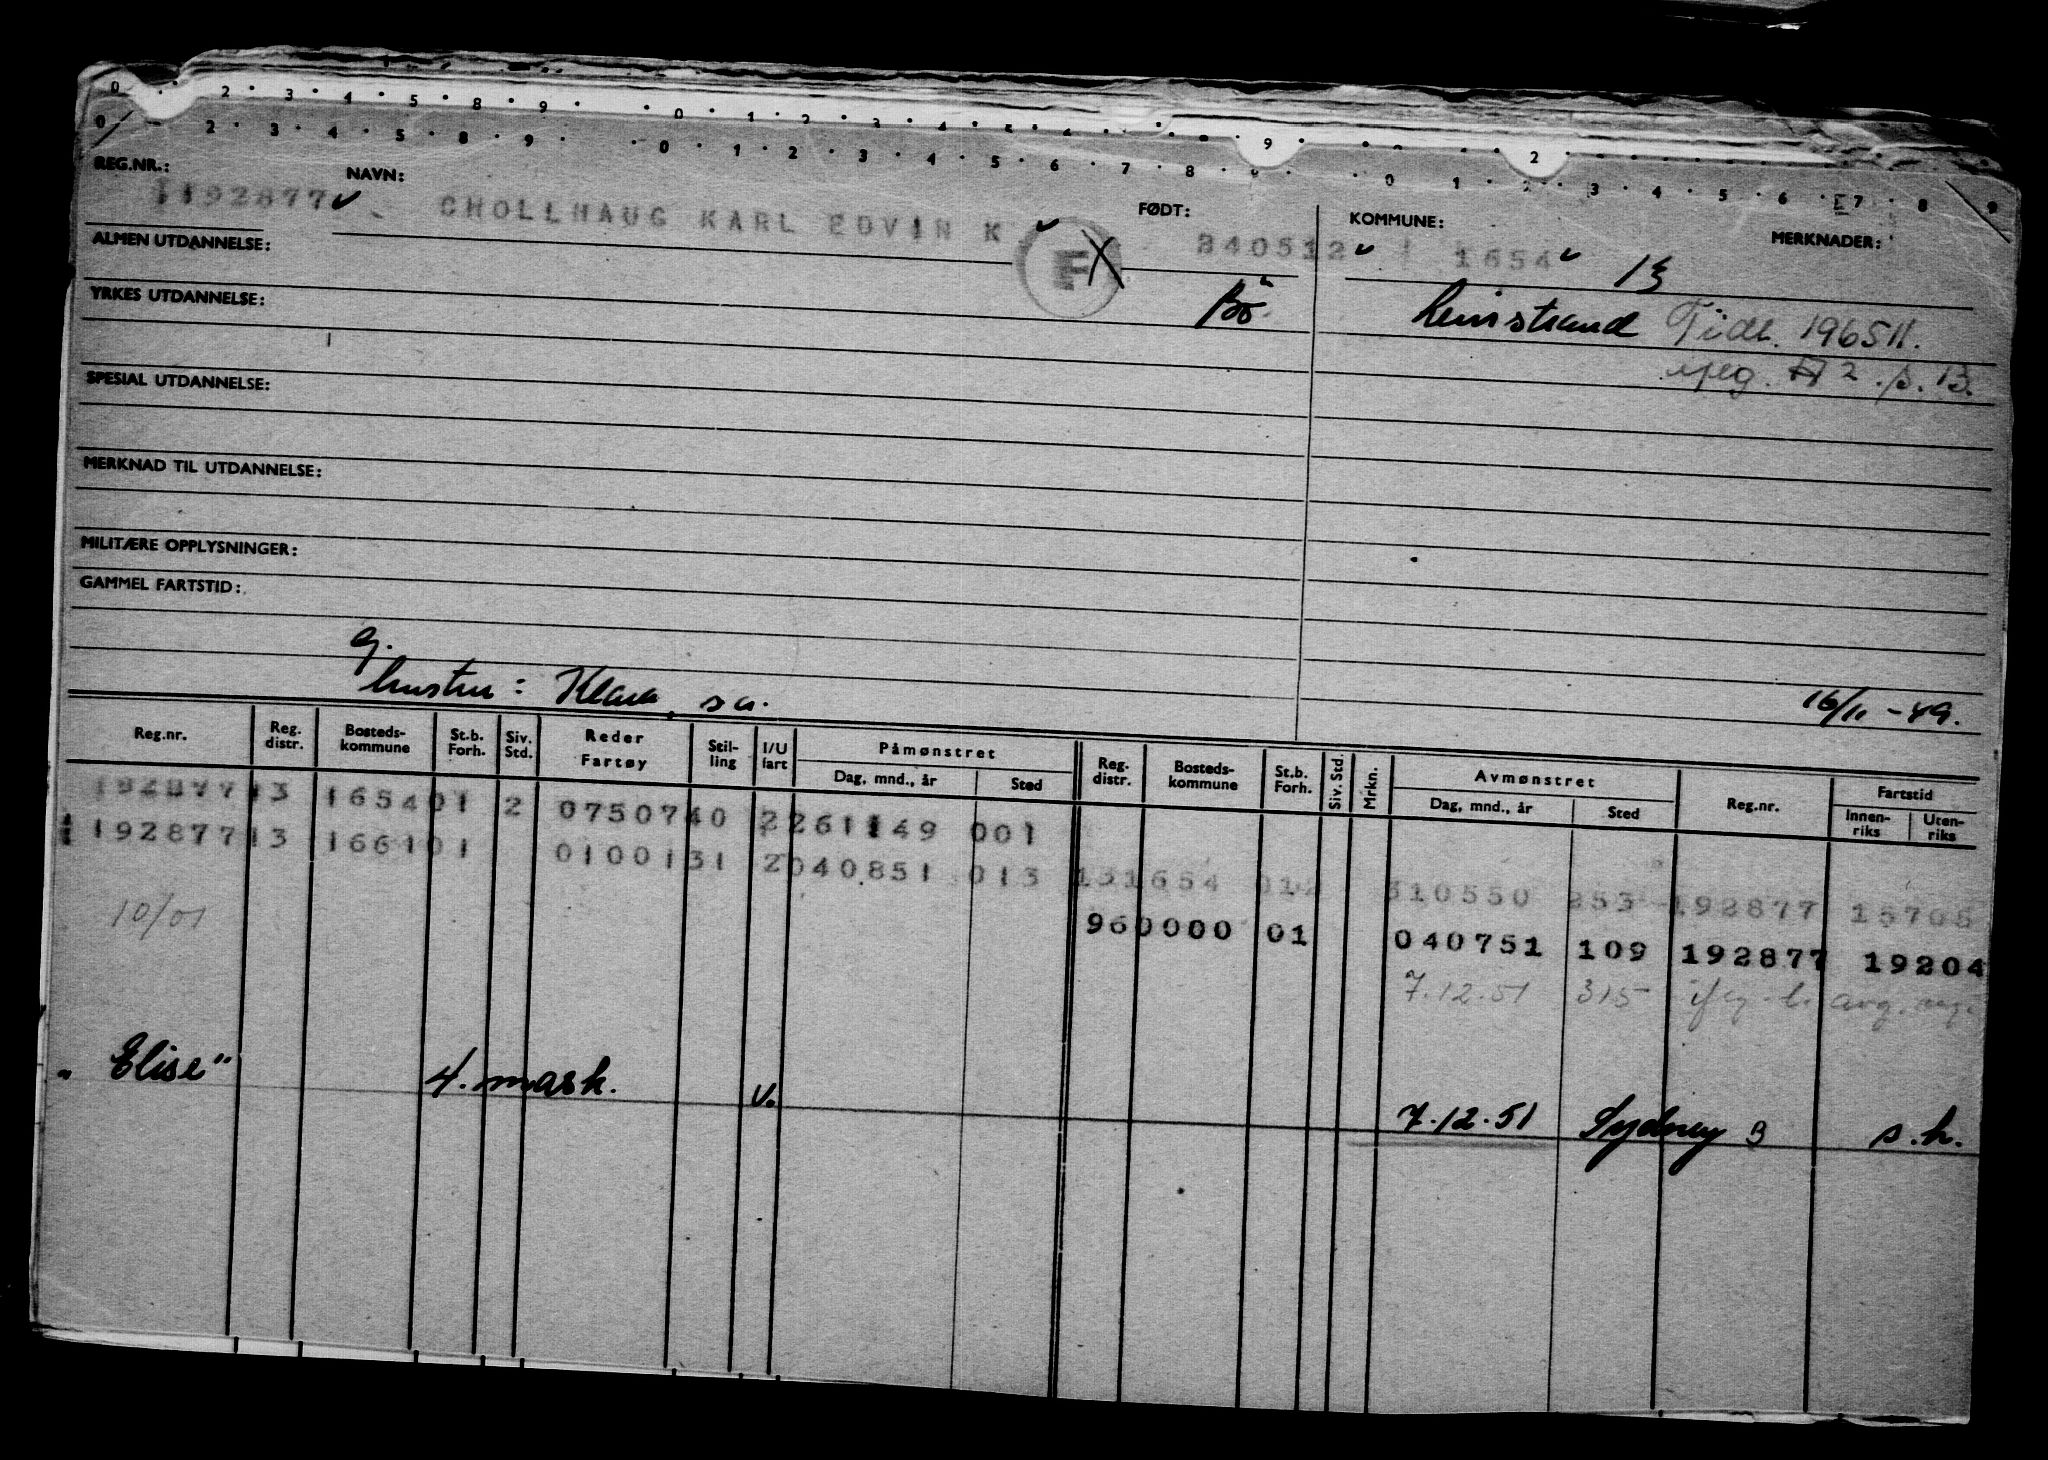 0 2 3 4 5 8 9 0 1 2 3 4 5 9 2
0 2 3 4 5 8 9 0 1 2 3 4 5 6 7 8 0 1 2 3 4 5 6 7 8 9
REG.NR.: NAVN: FØDT: KOMMUNE: MERKNADER:
192877 CHOLLHAUG KARL EDVIN K F 340512 1654 13
ALMEN UTDANNELSE:
Bö. Leinstrand Tidl. 1965
YRKES UTDANNELSE:
2. s. B.
SPESIAL UTDANNELSE:
MERKNAD TIL UTDANNELSE:
MILITÆRE OPPLYSNINGER:
GAMMEL FARTSTID:
g.
hustru: Klara, sa. 16/11-49.
Reg.nr. Reg. distr. Bosteds-kommune St.b. Forh. Siv. Std. Reder Fartøy Stil-ling I/U fart Påmønstret Dag, mnd., år Sted Reg. distr. Bosteds-kommune St.b. Forh. Siv. Std. Mrkn. Avmønstret Dag, mnd., år Sted Reg.nr. Fartstid Innen-riks Uten-riks
192877 13 1654 01 2 0750740 2 261149 001
192877 13 1661 01 0100131 2 040851 013 131654 012 310550 253 192877 15705
10/01 960000 01 040751 109 192877 19204
7.12.51 315
"Elise" 4. mask. U. 7.12.51 Sydney B s.h.